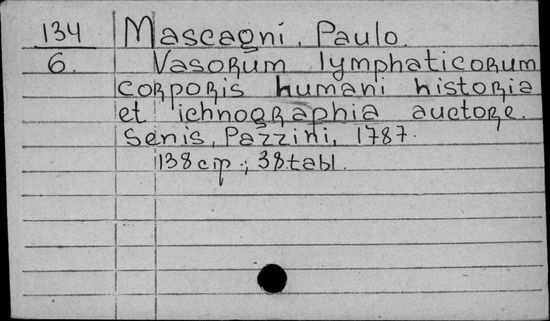 134 Mascagni, Paulo.
6. Vasorum lymphaticorum
corporis humani historia
et ichnographia auctore.
Senis, Pazzini, 1787.
138 стр.; 38 tabl.